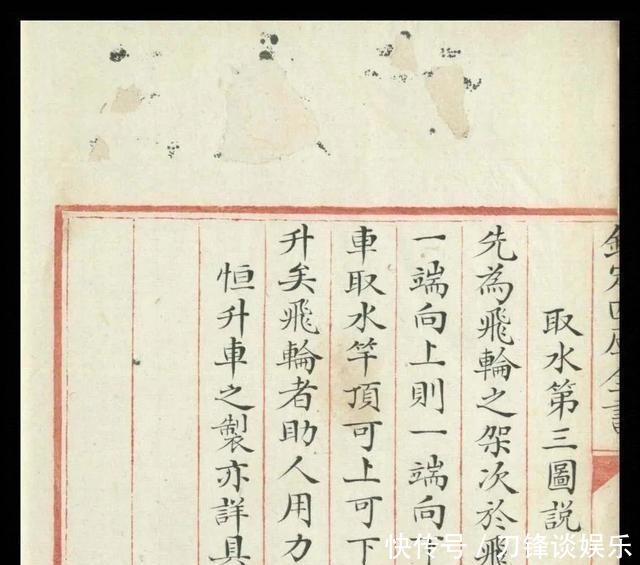 欽定四庫全書
取水第三圖説
先為飛輪之架次於飛
一端向上則一端向下
車取水竿頂可上可下
升矣飛輪者助人用力
恒升車之製亦詳具
快传号/刃锋谈娱乐